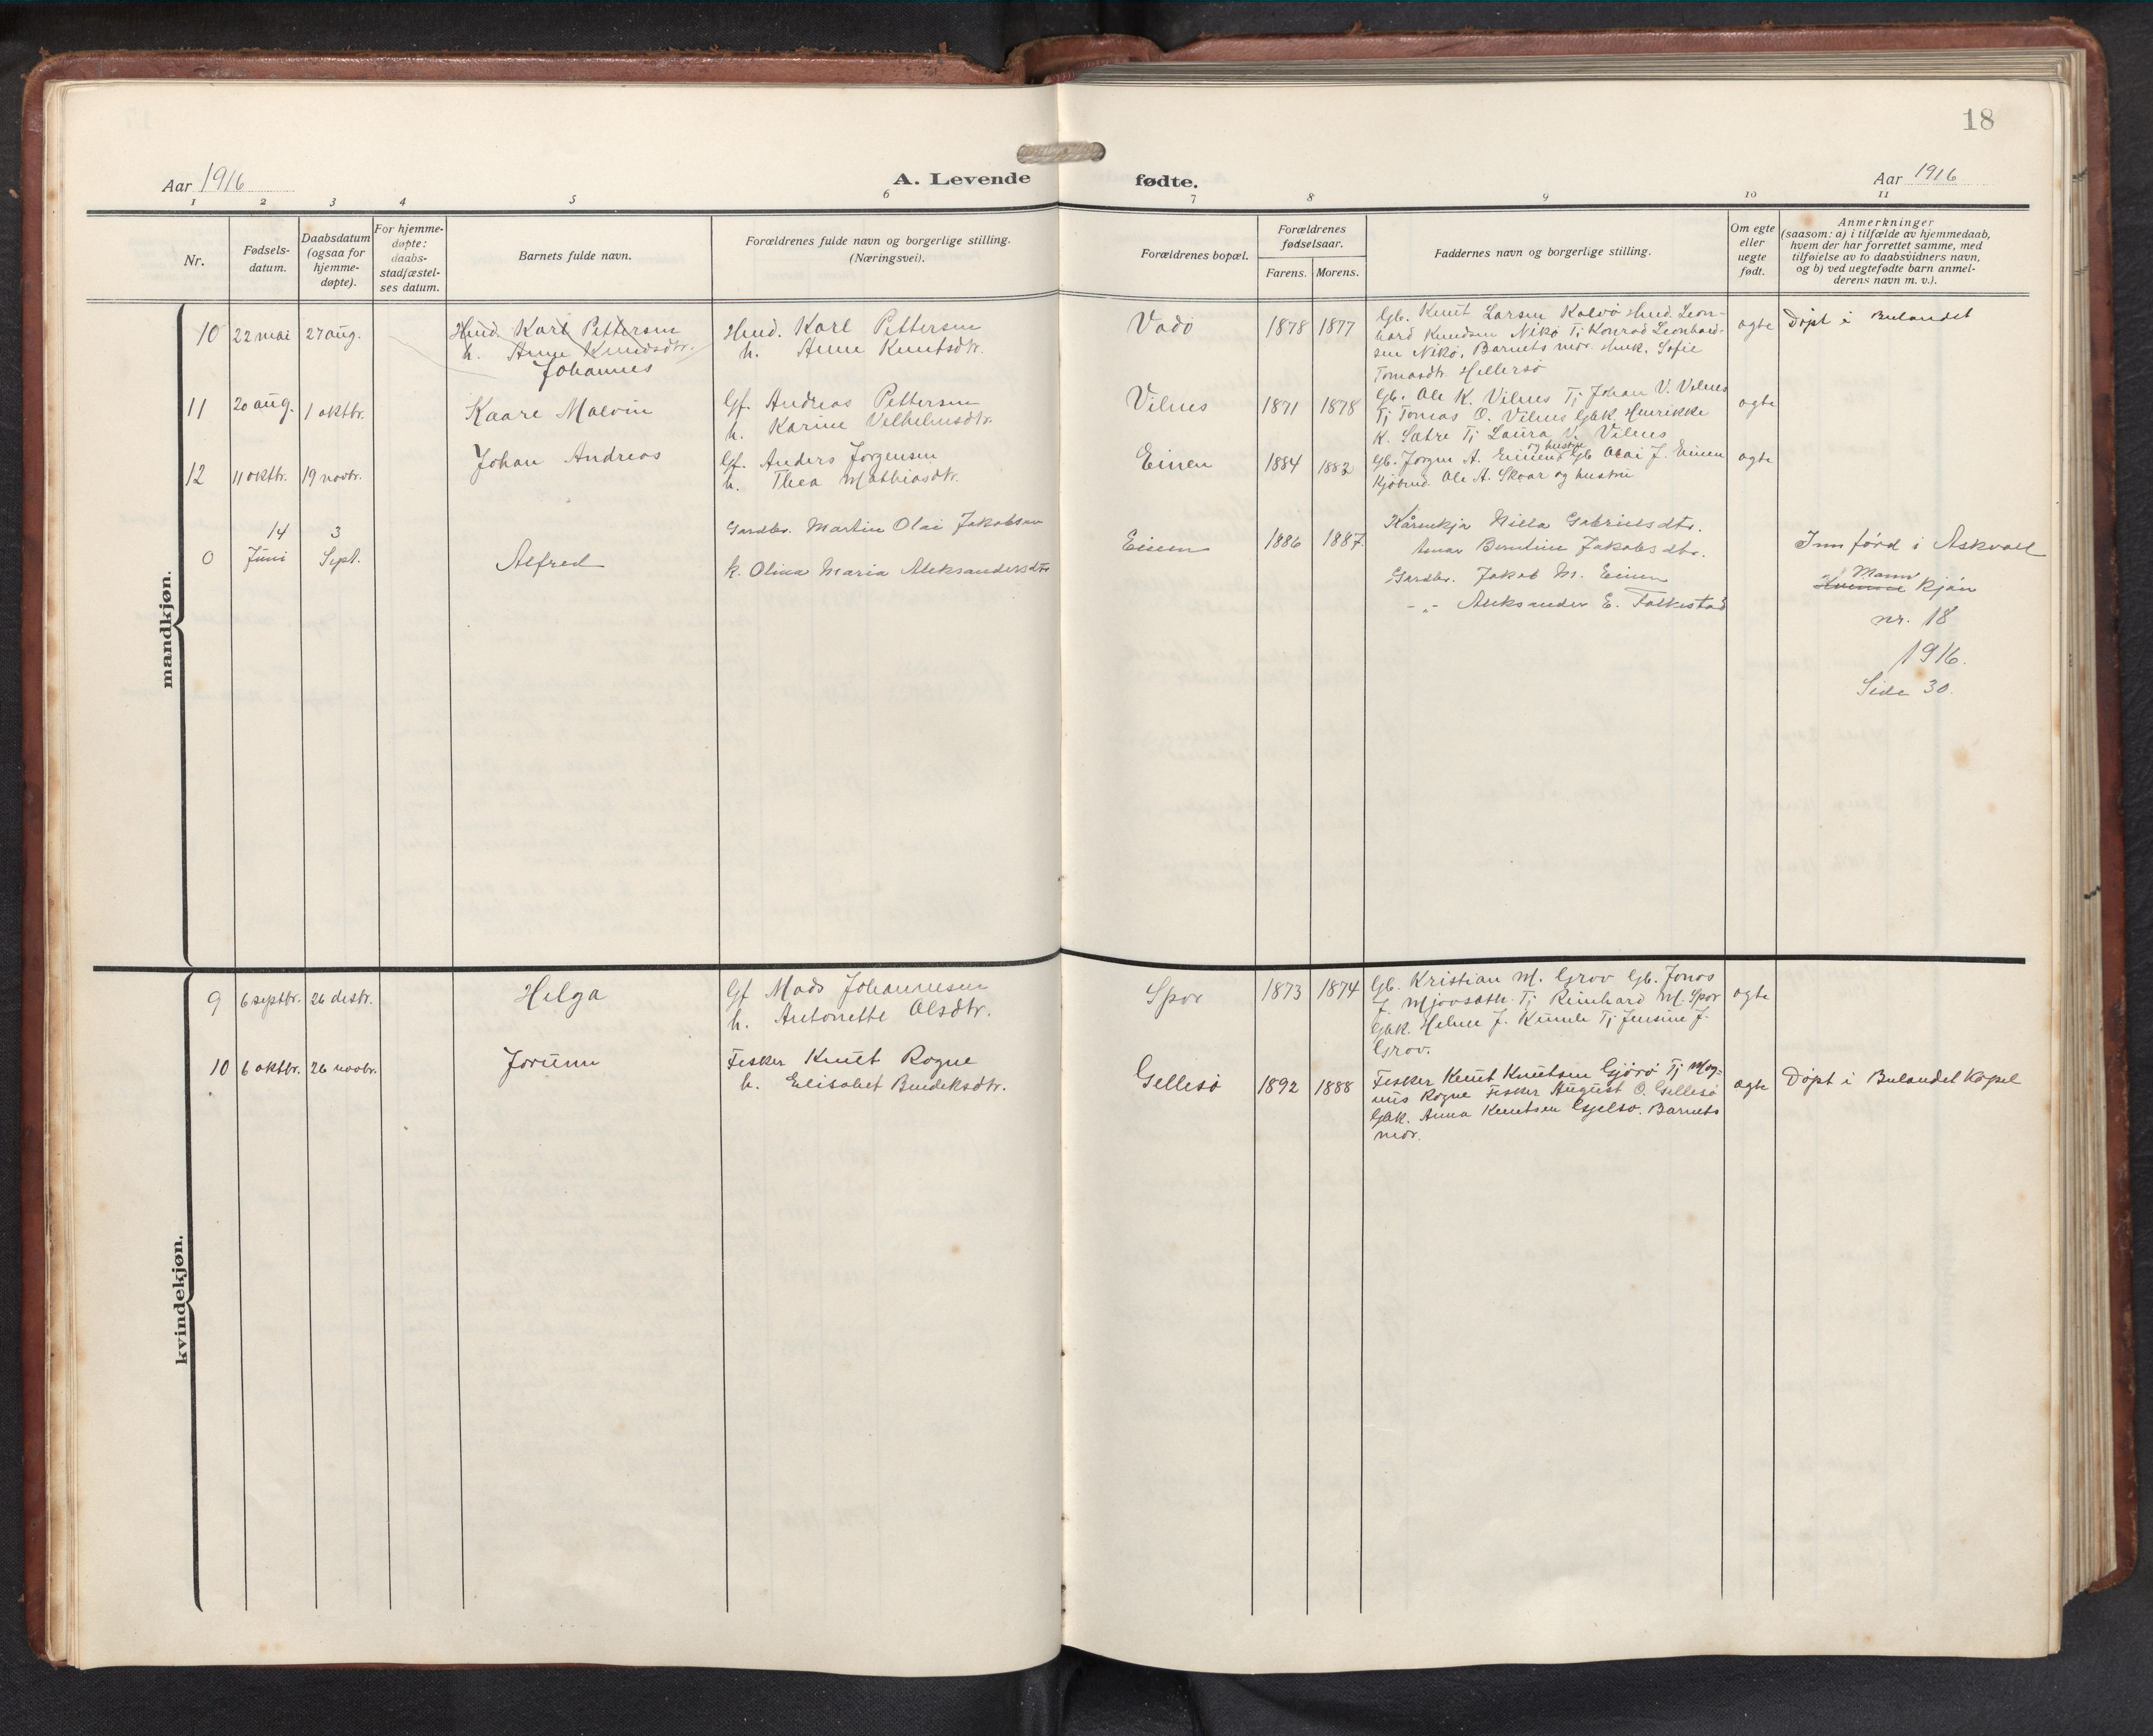 18
Aar 1916
A. Levende fødte.
Aar 1916
1 2 3 4 5 6 7 8 9 10 11
Nr.
Fødsels-
datum.
Daabsdatum
(ogsaa for
hjemme-
døpte).
For hjemme-
døpte:
daabs-
stadfæstel-
ses datum.
Barnets fulde navn.
Forældrenes fulde navn og borgerlige stilling.
(Næringsvei).
Forældrenes bopæl.
Forældrenes
fødselsaar.
Farens. Morens.
Faddernes navn og borgerlige stilling.
Om egte
eller
uegte
født.
Anmerkninger
(saasom: a) i tilfælde av hjemmedaab,
hvem der har forrettet samme, med
tilføielse av to daabsvidners navn,
og b) ved uegtefødte barn anmel-
derens navn m. v.).
mandkjøn.
10 22 mai 27 aug.
Hmd. Karl Pettersen
h. Anne Knudsdtr.
Johannes
Hmd. Karl Pettersen
h. Anne Knutsdtr.
Vadö 1878 1877
Gb. Knut Larsen Kalvö Hmd. Leon-
hard Knudsen Nikö Tj Konrad Leonhard-
sen Nikö. Barnets mor. Hmk. Sofie
Tomasdtr. Hillersö
egte
Döpt i Bulandet
11 20 aug. 1 oktbr.
Kaare Malvin
Gf. Andreas Pettersen
h. Karine Velhelmsdtr.
Vilnes 1871 1878
Gb. Ole K. Vilnes Tj Johan V. Vilnes
Tj Tomas O. Vilnes Gbk. Henrikke
K. Sætre Tj Laura V. Vilnes
egte
12 11 oktbr. 19 novbr.
Johan Andreas
Gf. Anders Jørgensen
h. Thea Mathiasdtr.
Einen 1884 1882
og hustru
Gb. Jørgen A. Einen Gb Olai J. Einen
Ole A. Skaar og hustru
egte
0 14 Juni 3 Sept.
Alfred
Gardbr. Martin Olai Jakobsen
k. Olina Maria Aleksandersdtr
Einen 1886 1887.
Kårmekja Nilla Gabrielsdtr.
Berntine Jakobsdtr.
Gardbr. Jakob M. Einen
-„- Aleksander E. Folkestad
Innförd i Askvoll
Mann
Kvinne kjön
nr. 18
1916.
Side 30.
kvindekjøn.
9 6 septbr. 26 desbr.
Helga
Gf Mads Johannesen
h. Antonette Olsdtr.
Spor 1873 1874
Gb. Kristian M. Grov Gb. Jonas
J. Mjovsæth. Tj Reinhard M. Spor
Gbk. Helene J. Kumle Tj Jensine J.
Grov.
egte
10 6 oktbr. 26 novbr.
Jorunn
Fisker Knut Rogne
h. Elisabet Bendeksdtr.
Gellesö 1892 1888
Fisker Knut Knutsen Gjörö Tj Mag-
nus Rogne Fisker August O. Gellesö
Gbk. Anna Knutsen Gjelsö. Barnets
mor.
egte
Döpt i Bulandet Kapel